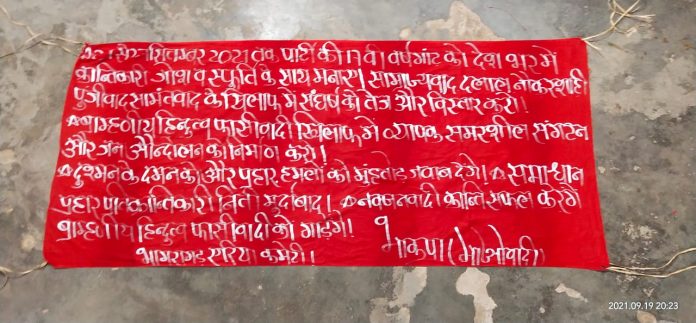 सितम्बर 2021 तक पार्टी की 17 वी वर्षगांट को देश भर में
क्रान्तिकारी जोश व स्पुर्ति के साथ मनाए। साम्राज्यवाद दलाल नोकरशाही
पुंजीवाद सामंतवाद के खिलाफ में संघर्ष को तेज और विस्तार करो।
ब्राम्हणीय हिन्दुत्व फासीवादी खिलाफ में व्यापक समरशील संगठन
और जन आन्दोलन का निर्माण करो।
दुश्मन के दमन को और प्रहार हमलों को मुंहतोड़ जवाब देंगे। समाधान
प्रहार प्रतिक्रान्तिकारी निती मुर्दाबाद। क्रान्ति सफल करेंगे
ब्राम्हणीय हिन्दुत्व फासीवादी को गाड़ेंगे।
भाकपा (माओवादी)
भामरागड़ एरिया कमेटी।
2021.09.19 20:23